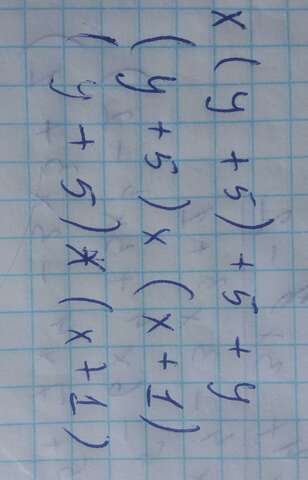 x(y+5)+5+y
(y+5)x(x+1)
(y+5)x(x+1)